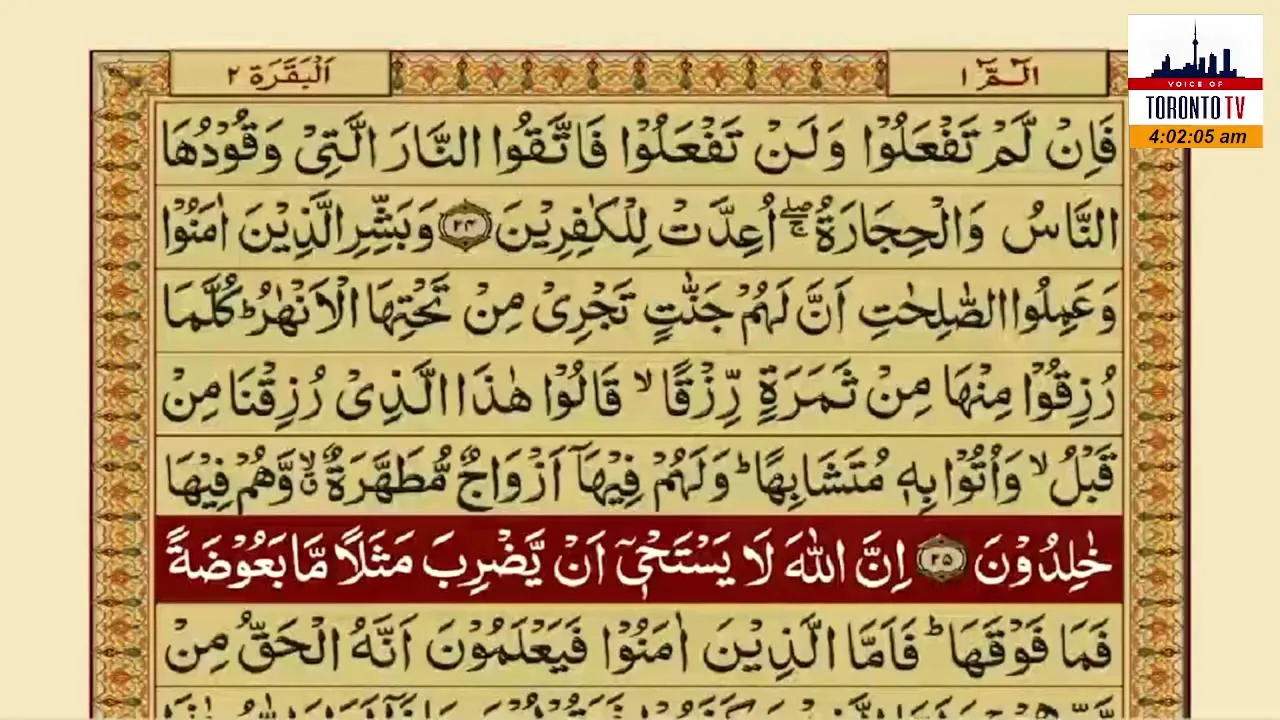 الٓمّٓ ١
اَلْبَقَرَة ٢
VOICE OF
TORONTO TV
4:02:05 am
فَاِنْ لَّمْ تَفْعَلُوْا وَلَنْ تَفْعَلُوْا فَاتَّقُوا النَّارَ الَّتِىْ وَقُوْدُهَا
النَّاسُ وَالْحِجَارَةُ ۖۚ اُعِدَّتْ لِلْكٰفِرِيْنَ ﴿۲۴﴾ وَبَشِّرِ الَّذِيْنَ اٰمَنُوْا
وَعَمِلُوا الصّٰلِحٰتِ اَنَّ لَهُمْ جَنّٰتٍ تَجْرِىْ مِنْ تَحْتِهَا الْاَنْهٰرُ ؕ كُلَّمَا
رُزِقُوْا مِنْهَا مِنْ ثَمَرَةٍ رِّزْقًا ۙ قَالُوْا هٰذَا الَّذِىْ رُزِقْنَا مِنْ
قَبْلُ ۙ وَاُتُوْا بِهٖ مُتَشَابِهًا ؕ وَلَهُمْ فِيْهَاۤ اَزْوَاجٌ مُّطَهَّرَةٌ ۙ وَّهُمْ فِيْهَا
خٰلِدُوْنَ ﴿۲۵﴾ اِنَّ اللّٰهَ لَا يَسْتَحْىٖۤ اَنْ يَّضْرِبَ مَثَلًا مَّا بَعُوْضَةً
فَمَا فَوْقَهَا ؕ فَاَمَّا الَّذِيْنَ اٰمَنُوْا فَيَعْلَمُوْنَ اَنَّهُ الْحَقُّ مِنْ